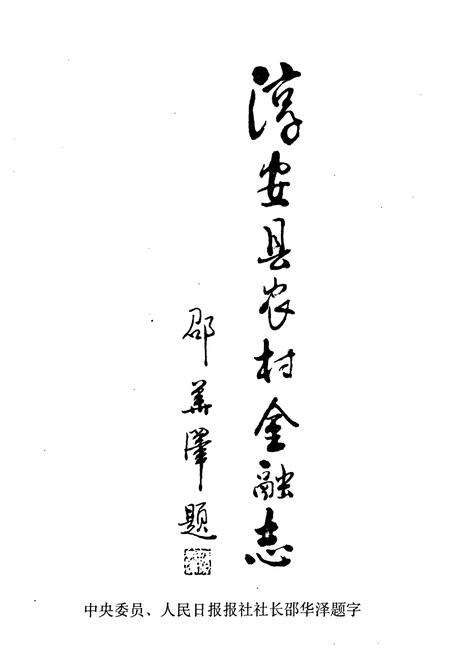 淳安县农村金融志
邵華澤題
中央委员、人民日报报社社长邵华泽题字